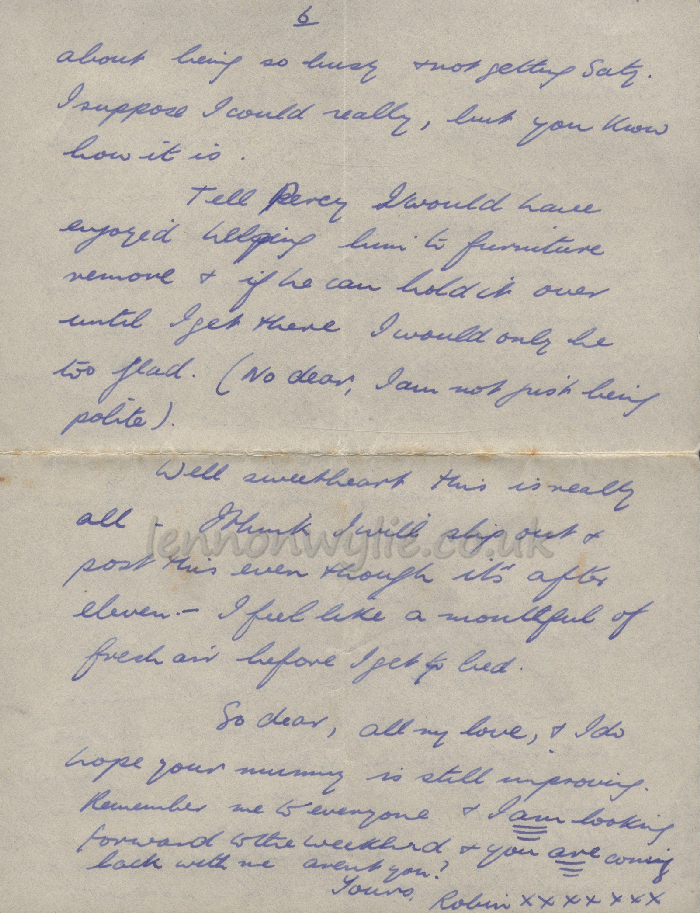 6
about being so busy & not getting Saty.
I suppose I could really, but you know
how it is.
Tell Percy I would have
enjoyed helping him to furniture
remove & if he can hold it over
until I get there I would only be
too glad. (No dear, I am not just being
polite).
Well sweetheart this is really
all - I think I will slip out &
post this even though it's after
eleven. - I feel like a mouthful of
fresh air before I get to bed.
So dear, all my love, & I do
hope your mummy is still improving.
Remember me to everyone & I am looking
forward to the weekend & you are coming
back with me arent you?
Yours,
Robin xxxx xxx
lennonwylie.co.uk